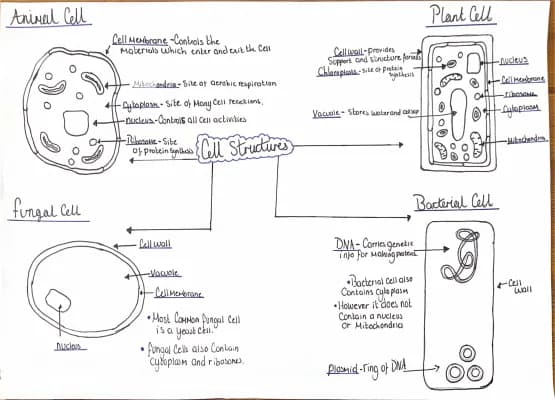 Animal Cell
Cell Membrane - Controls the
Materials which enter and exit the Cell
Mitochondria - Site of aerobic respiration
Cytoplasm - Site of Many Cell reactions.
nucleus - Controls all cell activities
Ribosome - Site
of protein synthesis
Cell Structures
Plant Cell
Cell wall - provides
Support and Structure
Chloroplasts - Site of protein
synthesis
Vacuole - Stores water and
nucleus
Cell membrane
ribosome
Cytoplasm
Mitochondria
Fungal Cell
Cell wall
Vacuole
Cell Membrane
nucleus
• Most Common fungal Cell
is a yeast Cell.
• fungal Cells also Contain
Cytoplasm and ribosomes.
Bacterial Cell
DNA - Carries genetic
info for Making proteins
• Bacterial Cell also
Contains Cytoplasm
• However it does not
Contain a nucleus
or Mitochondria
Cell
wall
plasmid - ring of DNA